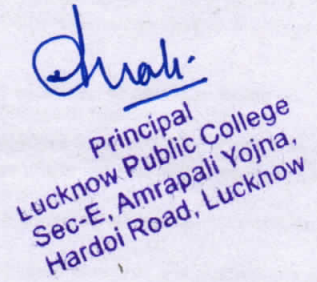 Principal
Lucknow Public College
Sec-E, Amrapali Yojna,
Hardoi Road, Lucknow